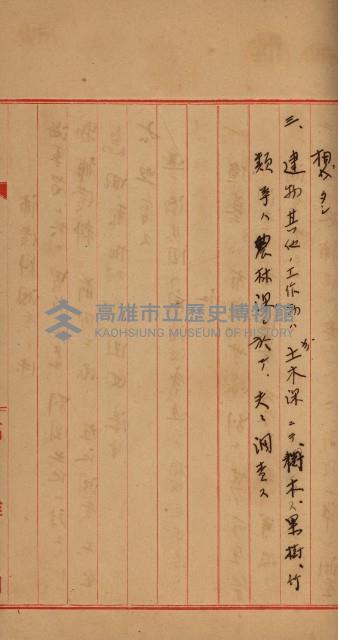 想タシ
三、建物其他ノ工作物ハ土木課ニテ、樹木、果樹、竹
類等ハ農林課ニ於テ、夫々調査ス
高雄市立歷史博物館
KAOHSIUNG MUSEUM OF HISTORY